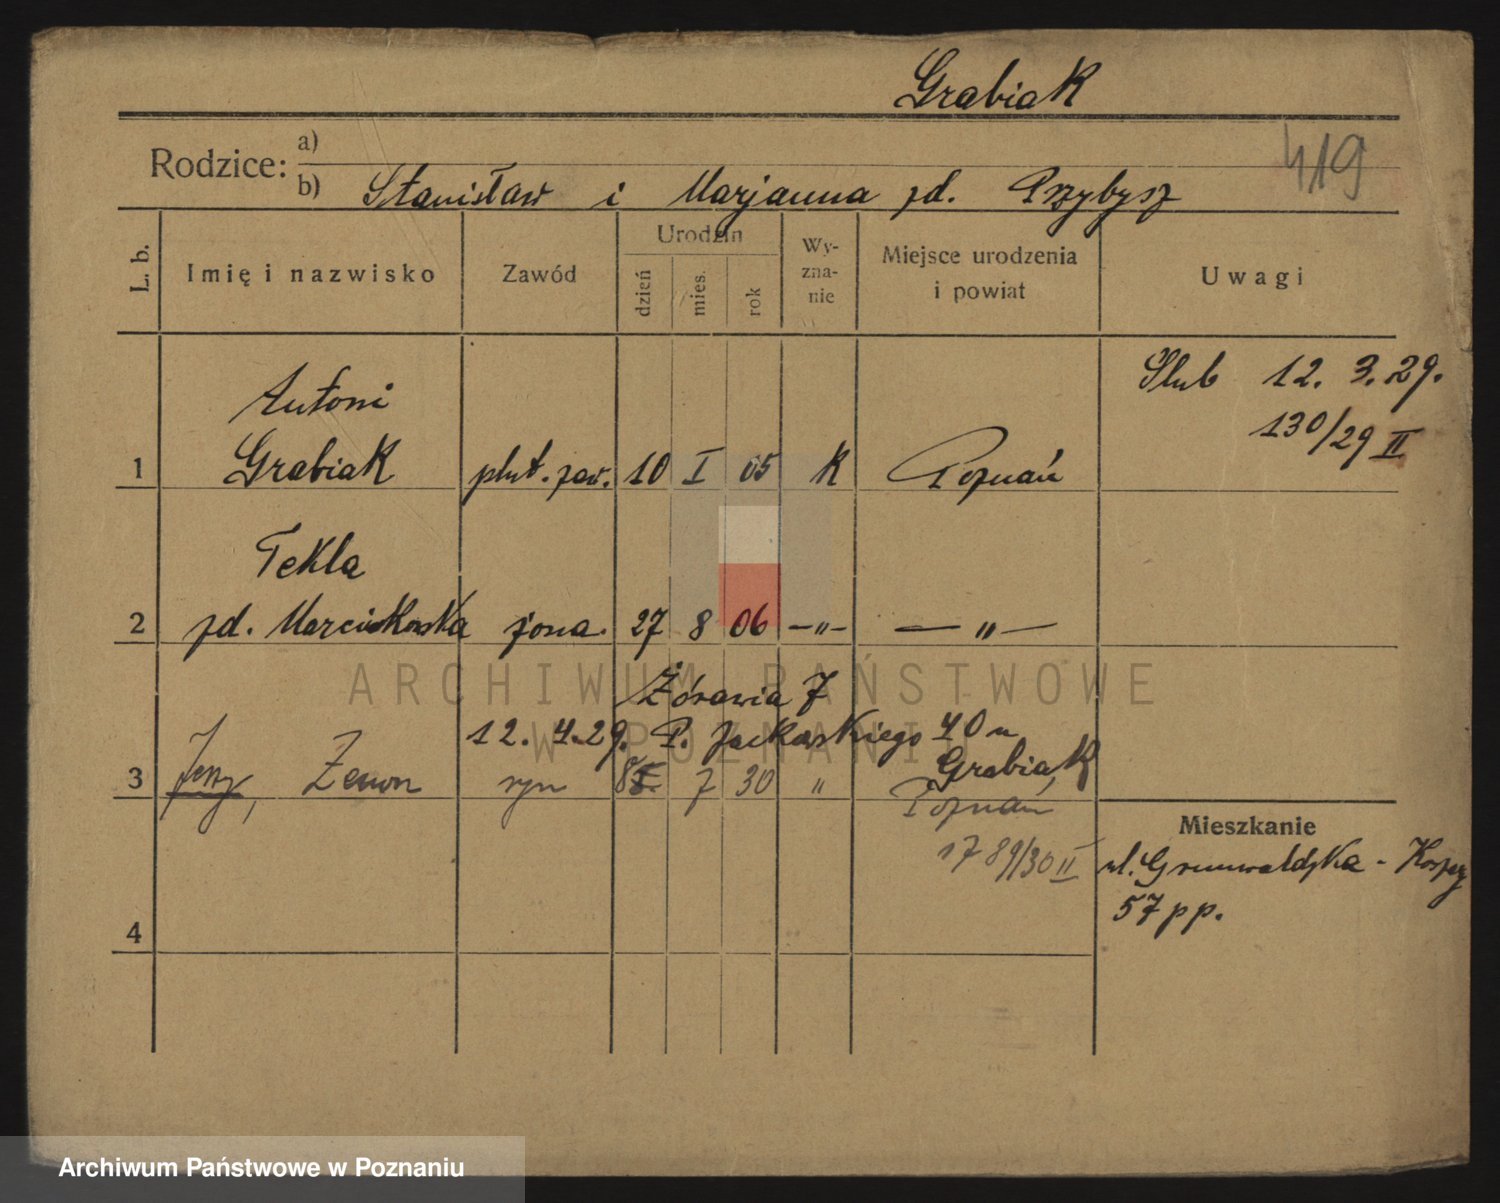 Grabiak
419
Rodzice: a)
b) Stanisław i Marjanna zd. Przybysz
L. b. Imię i nazwisko Zawód Urodzin dzień mies. rok Wy-zna-nie Miejsce urodzenia i powiat Uwagi
Ślub 12. 3. 29.
130/29 II
Antoni
1 Grabiak plut. zaw. 10 I 05 K Poznań
Tekla
2 zd. Marcinkowska żona 27 8 06 —"— —"—
Żórawia 7
12. 4. 29. P. Jackowskiego 40 u
Grabiak
3 Jerzy, Zenon syn 7 30 " Poznań
1789/30 II
Mieszkanie
ul. Grunwaldzka -
57 pp.
4
ARCHIWUM PAŃSTWOWE
W POZNANIU
Archiwum Państwowe w Poznaniu